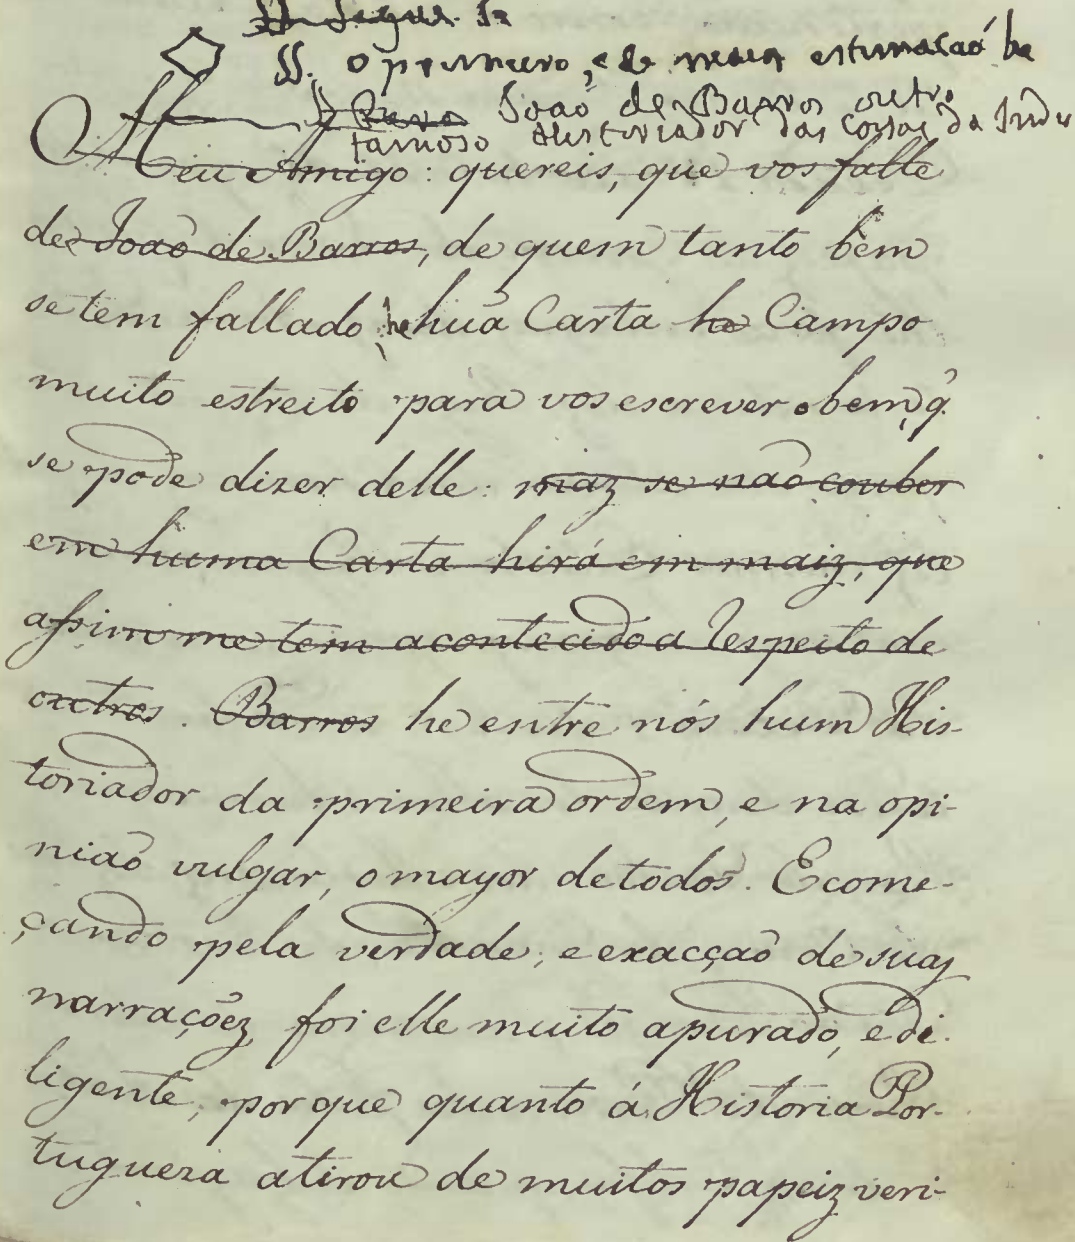 §§. o primeiro, e de maior estimação he
João de Barros outro
famoso Historiador das cousas da India
Meu Amigo: quereis, que vos falle
de João de Barros, de quem tanto bem
se tem fallado, he huã Carta he Campo
muito estreito para vos escrever o bem, q̃
se pode dizer delle: maz se não couber
em huma Carta hirá em maiz, que
assim me tem acontecido a respeito de
outros. Barros he entre nós hum His-
toriador da primeira ordem, e na opi-
nião vulgar, o mayor de todos. E come-
çando pela verdade, e exacção de suas
narraçõez, foi elle muito apurado, e di-
ligente, porque quanto á Historia Por-
tugueza a tirou de muitos papeiz veri-